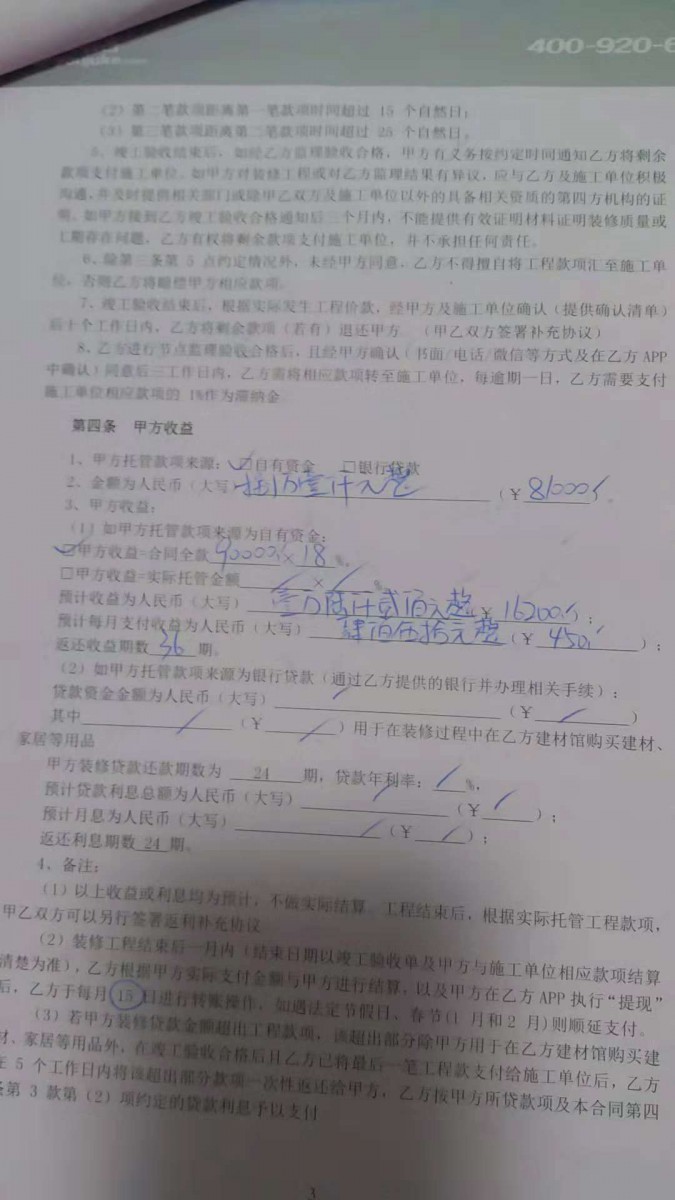 400-920-6
(2) 第二笔款项距离第一笔款项时间超过 15 个自然日;
(3) 第三笔款项距离第二笔款项时间超过 25 个自然日。
5、竣工验收结束后,如经乙方监理验收合格,甲方有义务按约定时间通知乙方将剩余
款项支付施工单位。如甲方对装修工程或对乙方监理结果有异议,应与乙方及施工单位积极
沟通,并及时提供相关部门或除甲乙双方及施工单位以外的具备相关资质的第四方机构的证
明。如甲方接到乙方竣工验收合格通知后三个月内,不能提供有效证明材料证明装修质量或
工期存在问题,乙方有权将剩余款项支付施工单位,并不承担任何责任。
6、除第三条第 5 点约定情况外,未经甲方同意,乙方不得擅自将工程款项汇至施工单
位,否则乙方将赔偿甲方相应款项。
7、竣工验收结束后,根据实际发生工程价款,经甲方及施工单位确认(提供确认清单)
后十个工作日内,乙方将剩余款项(若有)退还甲方。(甲乙双方签署补充协议)
8、乙方进行节点监理验收合格后,且经甲方确认(书面/电话/微信等方式及在乙方 APP
中确认)同意后三工作日内,乙方需将相应款项转至施工单位,每逾期一日,乙方需要支付
施工单位相应款项的 1%作为滞纳金
第四条 甲方收益
1、甲方托管款项来源:☑自有资金 □银行贷款
2、金额为人民币(大写 捌万壹仟元整 (¥ 81000
3、甲方收益:
(1)如甲方托管款项来源为自有资金:
☑甲方收益=合同全款 90000 × 18 %
□甲方收益=实际托管金额 / × / %
预计收益为人民币(大写) 壹万陆仟贰佰元整 ¥ 16200 );
预计每月支付收益为人民币(大写) 肆佰伍拾元整 (¥ 450 );
返还收益期数 36 期。
(2)如甲方托管款项来源为银行贷款(通过乙方提供的银行并办理相关手续):
贷款资金金额为人民币(大写) / (¥ / )
其中 / (¥ / )用于在装修过程中在乙方建材馆购买建材、
家居等用品
甲方装修贷款还款期数为 24 期,贷款年利率: / %,
预计贷款利息总额为人民币(大写) / (¥ / );
预计月息为人民币(大写) / (¥ / );
返还利息期数 24 期。
4、备注:
(1)以上收益或利息均为预计,不做实际结算。工程结束后,根据实际托管工程款项,
甲乙双方可以另行签署返利补充协议
(2)装修工程结束后一月内(结束日期以竣工验收单及甲方与施工单位相应款项结算
清楚为准),乙方根据甲方实际支付金额与甲方进行结算,以及甲方在乙方 APP 执行“提现”
后,乙方于每月 15 日进行转账操作,如遇法定节假日、春节(1 月和 2 月)则顺延支付。
(3)若甲方装修贷款金额超出工程款项,该超出部分除甲方用于在乙方建材馆购买建
材、家居等用品外,在竣工验收合格后且乙方已将最后一笔工程款支付给施工单位后,乙方
在 5 个工作日内将该超出部分款项一次性返还给甲方,乙方按甲方所贷款项及本合同第四
条第 3 款第(2)项约定的贷款利息予以支付
3